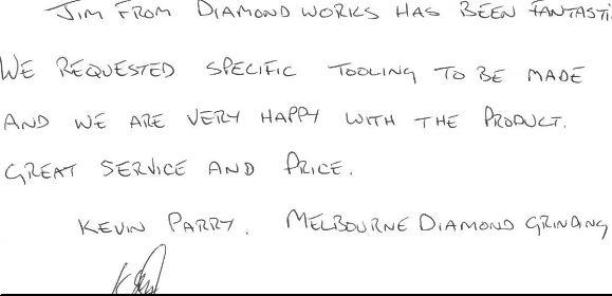 JIM FROM DIAMOND WORKS HAS BEEN FANTASTI
WE REQUESTED SPECIFIC TOOLING TO BE MADE
AND WE ARE VERY HAPPY WITH THE PRODUCT.
GREAT SERVICE AND PRICE.
KEVIN PARRY. MELBOURNE DIAMOND GRINDING